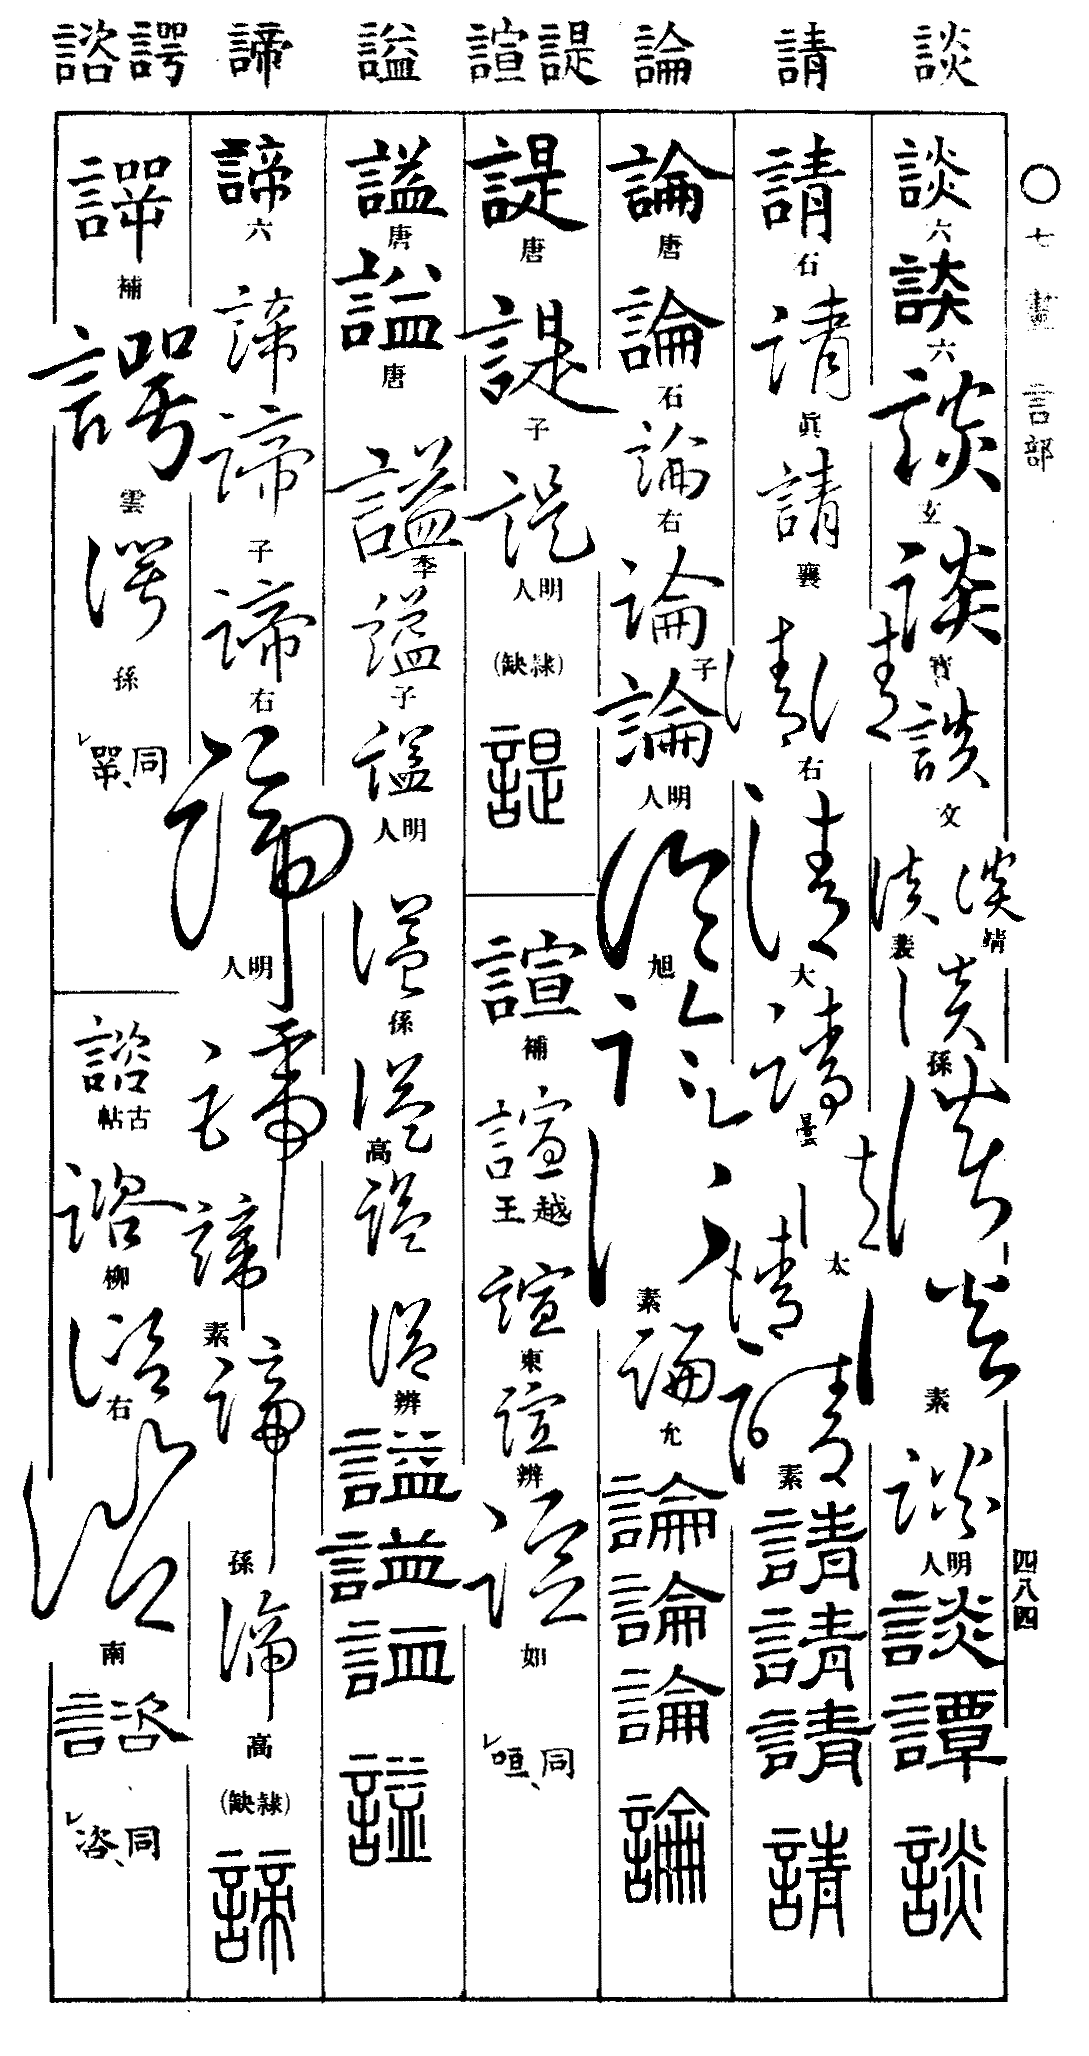 〇七畫 言部
四八四
談 請 論 諟 諠 謚 諦 諤 諮
談 六
談 六
談 玄
談 寳
談 文
談 靖
談 裴
談 孫
談 素
談 明人
談
譚
談
請 石
請 眞
請 襄
請 右
請 大
請 曇
請 太
請 素
請
請
請
請
論 唐
論 石
論 右
論 子
論 明人
論 旭
論 素
論 允
論
論
論
論
諟 唐
諟 子
諟 明人
(隷缺)
諟
諠 補
諠 越王
諠 東
諠 辨
諠 如
咺、同
謚 唐
謚 唐
謚 季
謚 子
謚 明人
謚 孫
謚 高
謚 辨
謚
謚
謚
謚
諦 六
諦 子
諦 右
諦 明人
諦 素
諦 孫
諦 高
(隷缺)
諦
諤 補
諤 雲
諤 孫
咢、同
諮 古帖
諮 柳
諮 右
諮 南
諮
咨、同